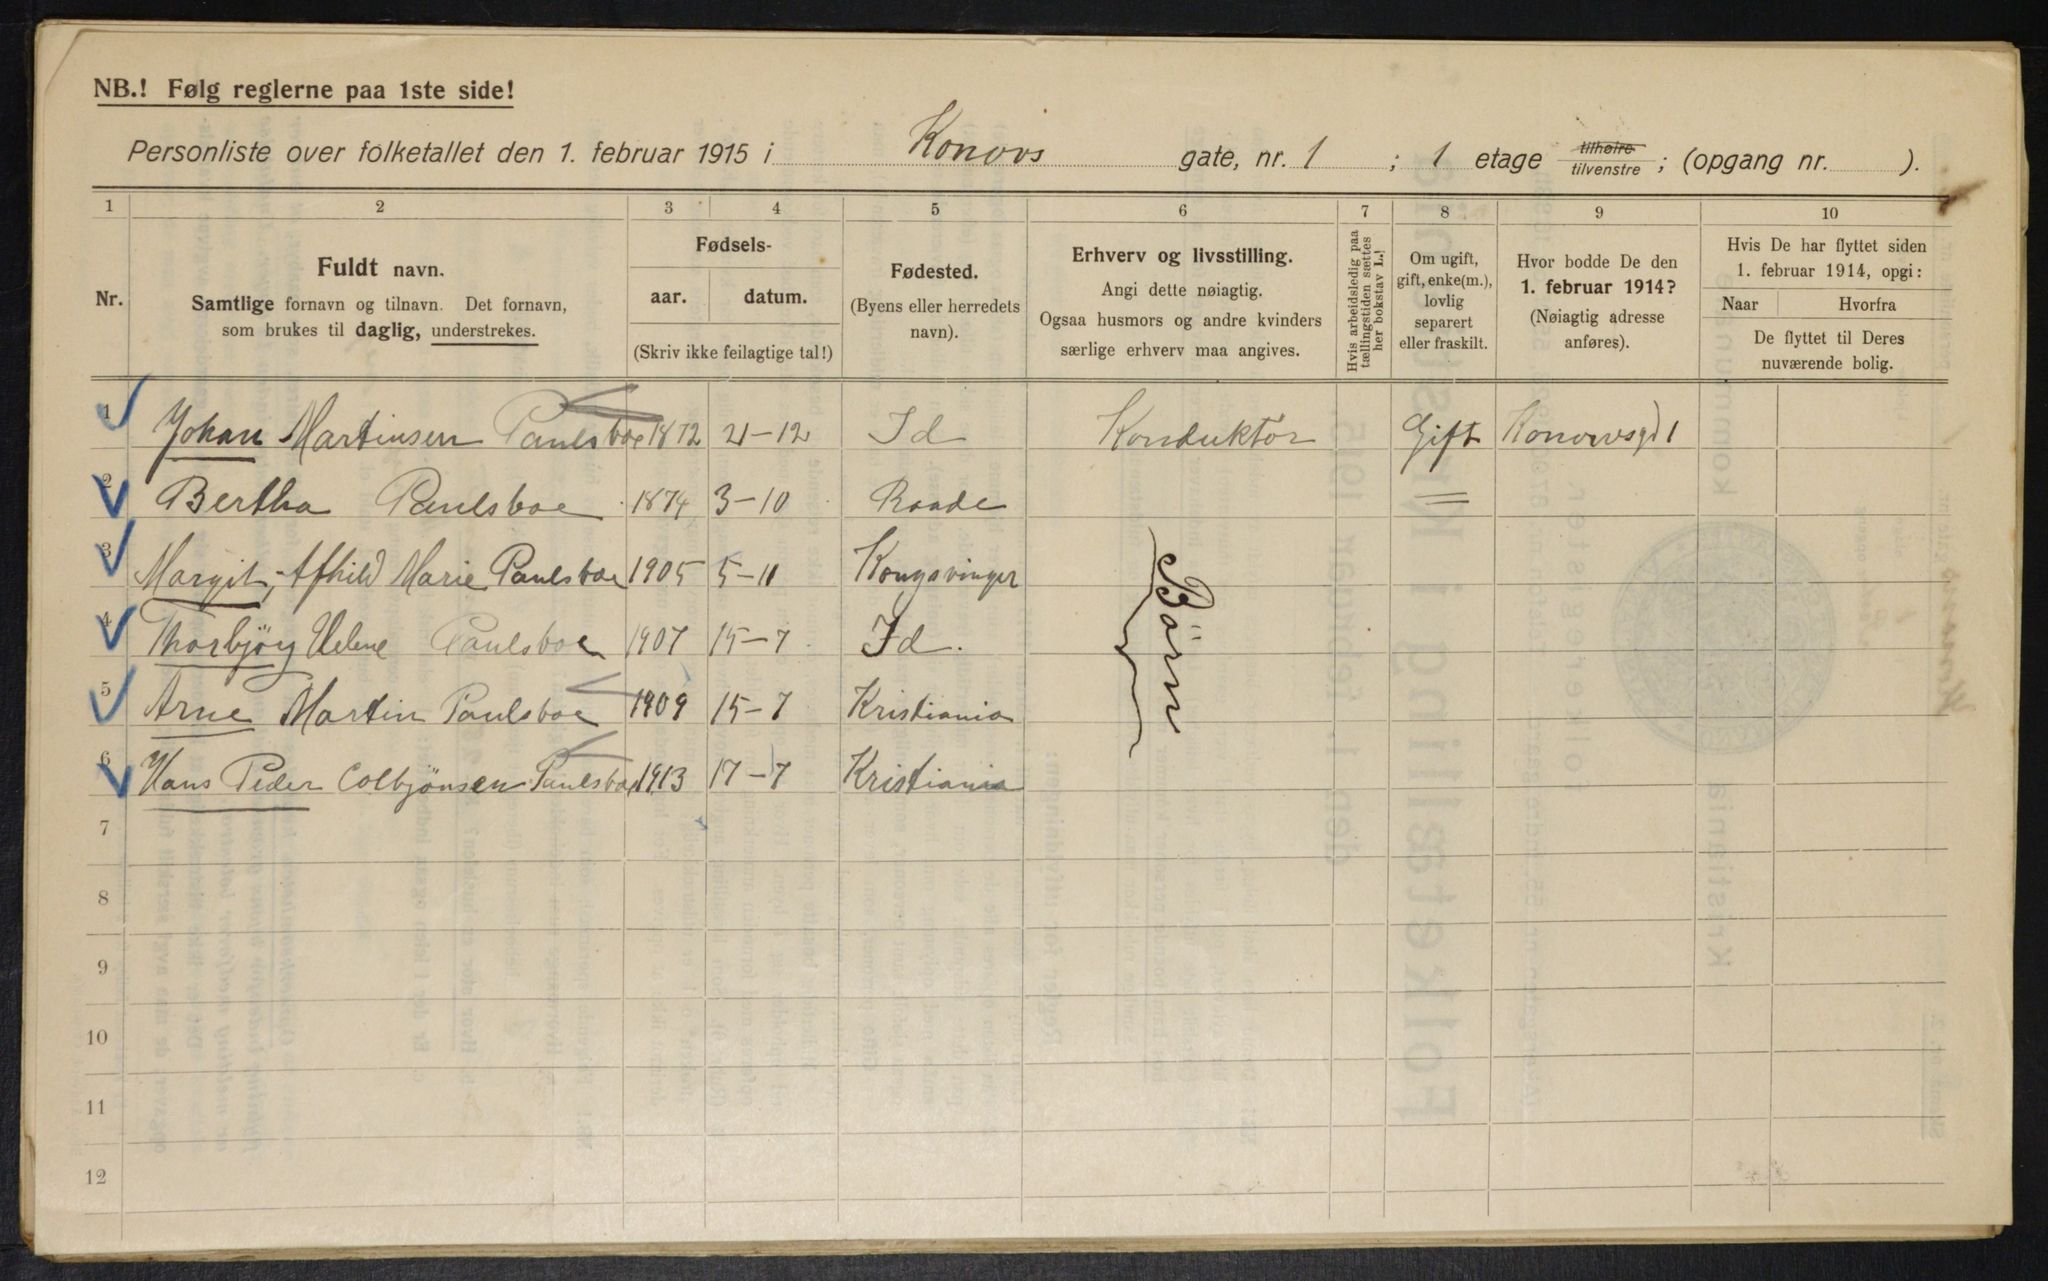 NB.! Følg reglerne paa 1ste side!
Personliste over folketallet den 1. februar 1915 i Konows gate, nr. 1 ; 1 etage tilhøire tilvenstre ; (opgang nr. ).
1 2 3 4 5 6 7 8 9 10
Nr.
Fuldt navn.
Samtlige fornavn og tilnavn. Det fornavn,
som brukes til daglig, understrekes.
Fødsels-
aar. datum.
(Skriv ikke feilagtige tal!)
Fødested.
(Byens eller herredets
navn).
Erhverv og livsstilling.
Angi dette nøiagtig.
Ogsaa husmors og andre kvinders
særlige erhverv maa angives.
Hvis arbeidsledig paa
tællingstiden sættes
her bokstav L.!
Om ugift,
gift, enke(m.),
lovlig
separert
eller fraskilt.
Hvor bodde De den
1. februar 1914?
(Nøiagtig adresse
anføres).
Hvis De har flyttet siden
1. februar 1914, opgi:
Naar Hvorfra
De flyttet til Deres
nuværende bolig.
1 Johan Martinsen Paulsboe 1872 21-12 Id Konduktør Gift Konowsgd 1
2 Bertha Paulsboe 1874 3-10 Raade =
3 Margit, Afhild Marie Paulsboe 1905 5-11 Kongsvinger
4 Thorbjörg Helene Paulsboe 1907 15-7 Id.
Börn
5 Arne Martin Paulsboe 1909 15-7 Kristiania
6 Hans Peder Colbjönsen Paulsboe 1913 17-7 Kristiania
7
8
9
10
11
12